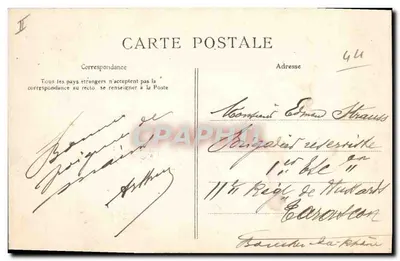 II
CARTE POSTALE
44
Correspondance
Adresse
Tous les pays étrangers n'acceptent pas la
correspondance au recto. se renseigner à la Poste
Bonne
poignée de
main
Arthur
Monsieur Edmond Strauss
Brigadier réserviste
1er Esc on
11e Régt de Hussards
Tarascon
Bouches du Rhône